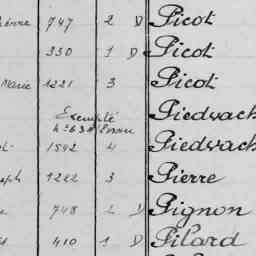 747 2 D Picot
330 1 D Picot
Marie 1221 3 Picot
Exempté Piedvach
1542 4 Piedvach
1222 3 Pierre
748 2 D Pignon
410 1 D Pilard